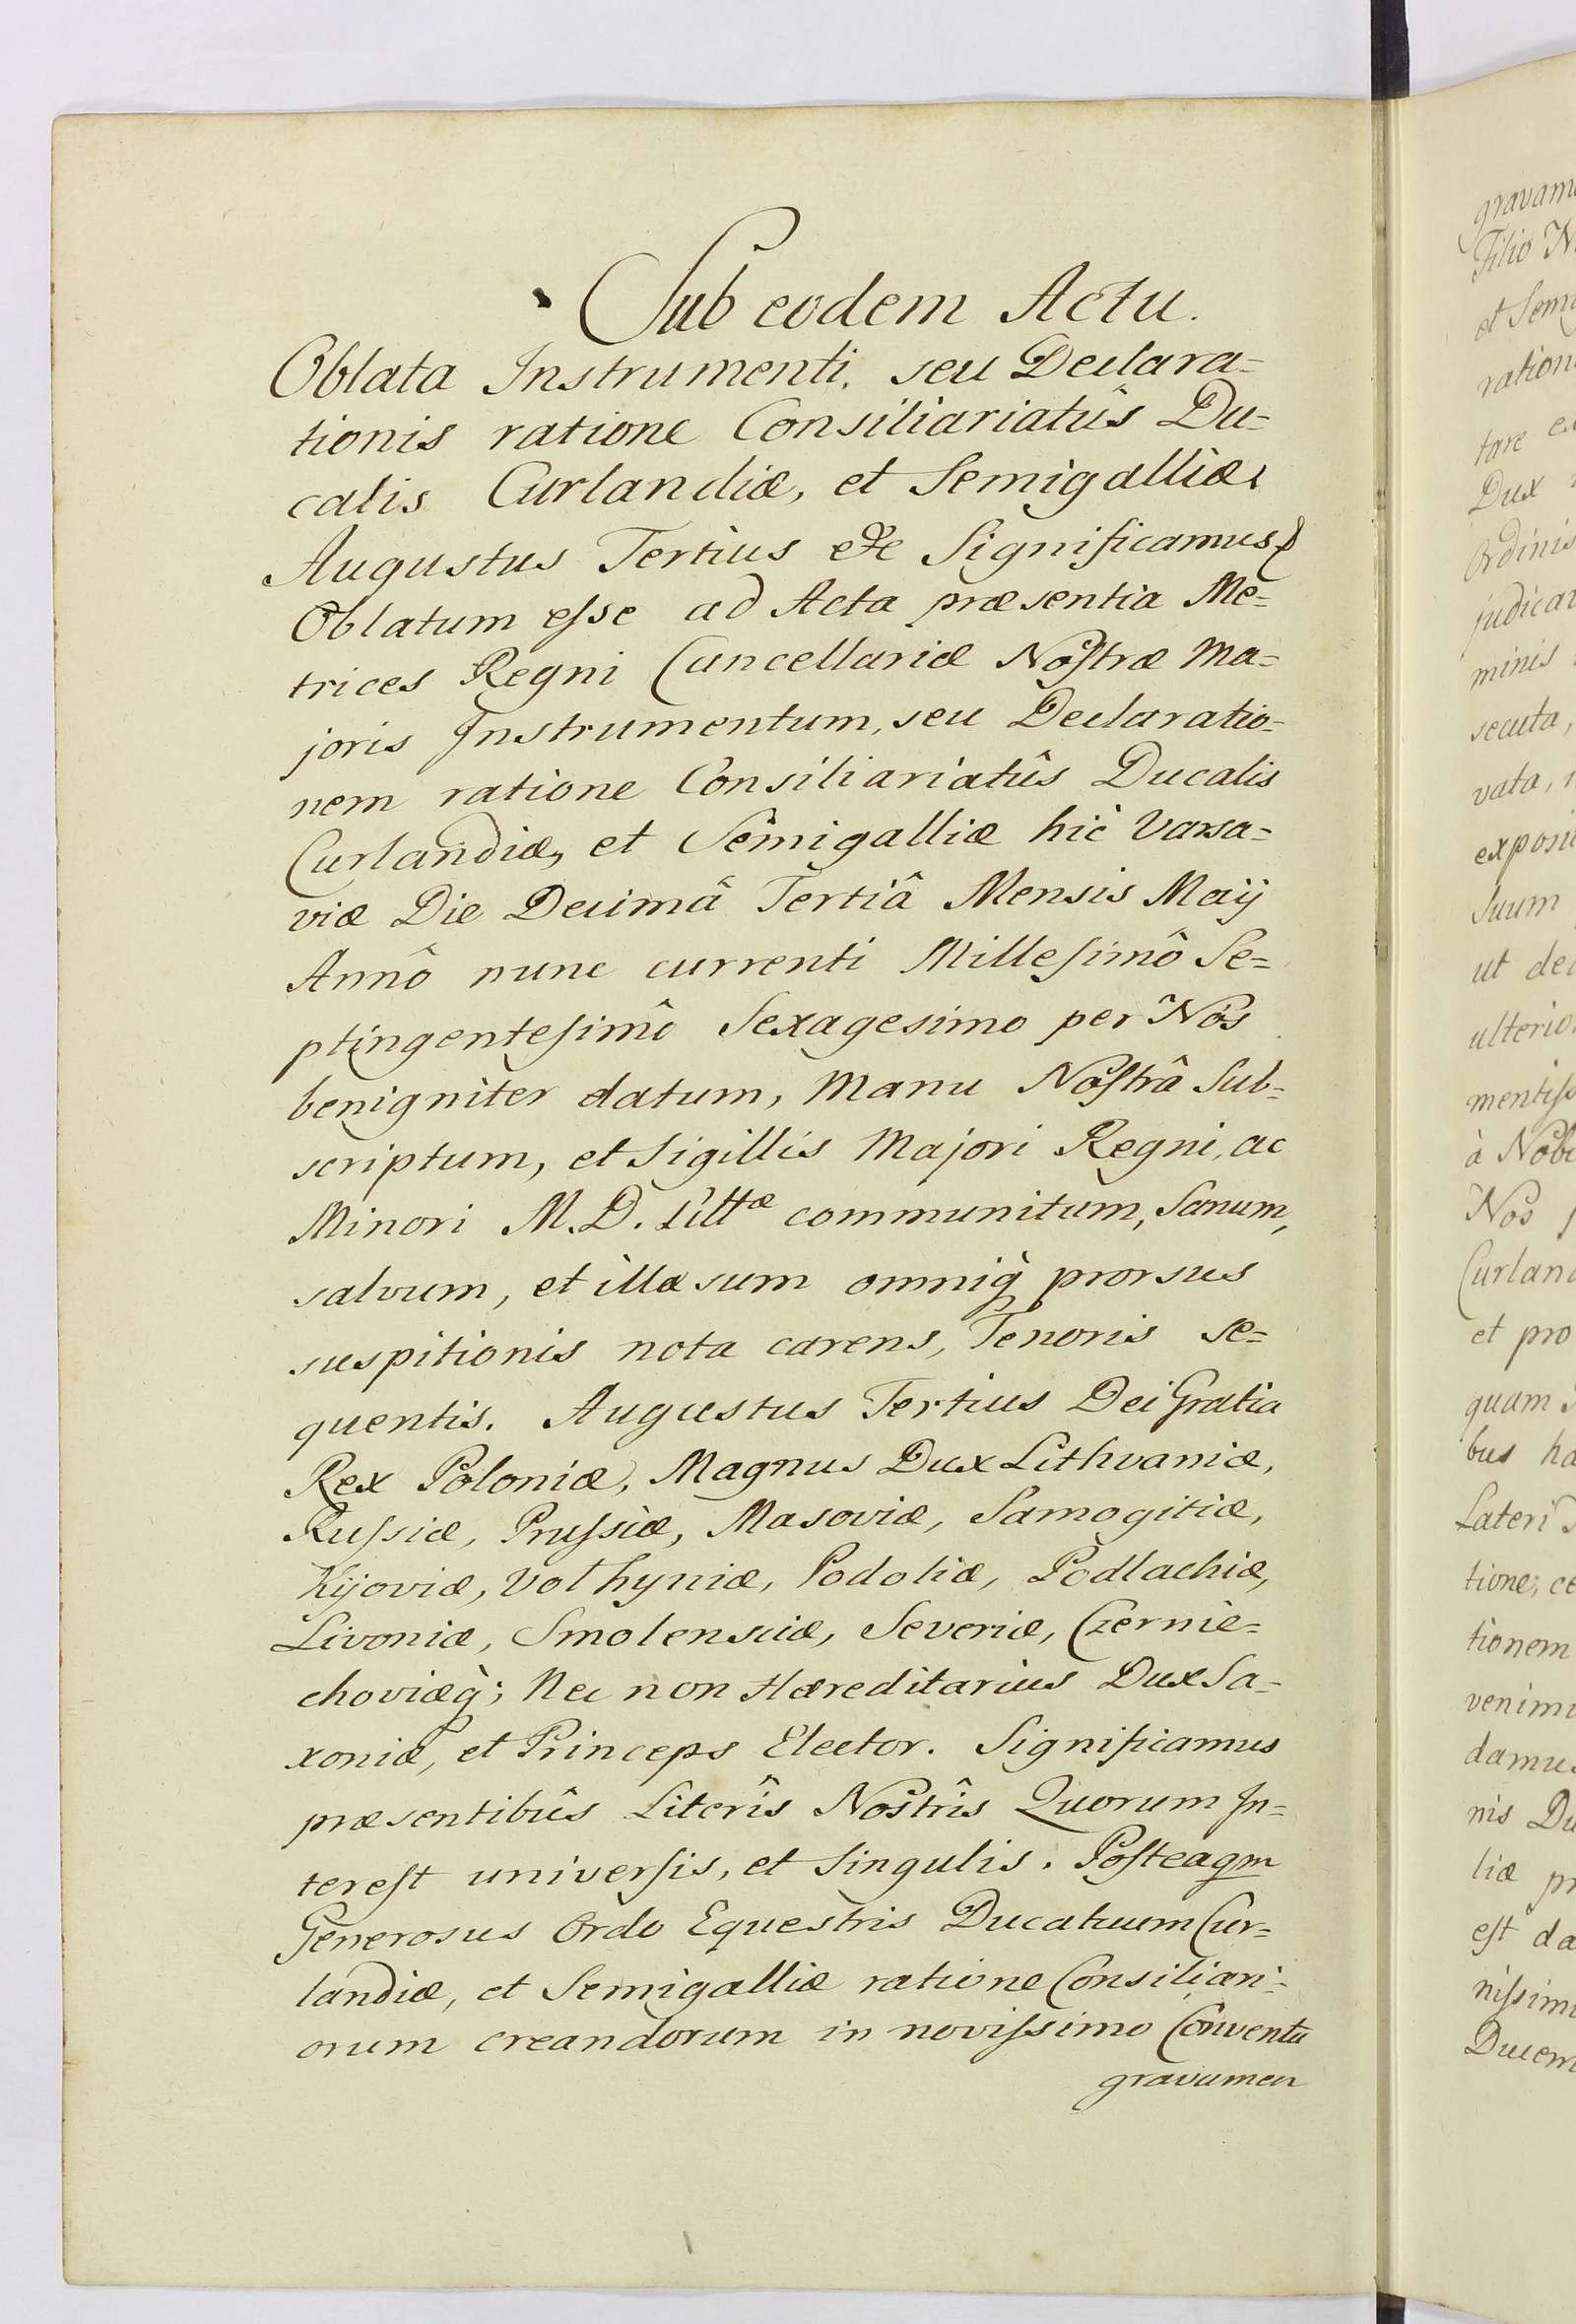 Sub eodem Actu.
Oblata Instrumenti, seu Declara=
tionis ratione Consiliariatûs Du=
calis Curlandiæ, et Semigalliæ
Augustus Tertius etc Significamus
Oblatum eſse ad Acta præsentia Me=
trices Regni Cancellariæ Noſtræ Ma=
joris Instrumentum, seu Declaratio=
nem ratione Consiliariatûs Ducalis
Curlandiæ, et Semigalliæ hìc Varsa=
viæ Die Decimâ Tertiâ Mensis Maÿ
Annô nunc currenti Milleſimô Se=
ptingenteſimô Sexagesimo per Nos
benigniter datum, Manu Noſtrâ Sub=
scriptum, et Sigillis Majori Regni, ac
Minori M. D. Littæ communitum, Sanum,
salvum, et illæsum omniq̀ prorsus
suspitionis nota carens, Tenoris se=
quentis. Augustus Tertius Dei Gratia
Rex Poloniæ, Magnus Dux Lithvaniæ,
Ruſsiæ, Pruſsiæ, Masoviæ, Samogitiæ,
Kijoviæ, Volhyniæ, Podoliæ, Podlachiæ,
Livoniæ, Smolensciæ, Severiæ, Czernie=
choviæq̀; Nec non Hæreditarius Dux Sa=
xoniæ, et Princeps Elector. Significamus
præsentibûs Literîs Nostrîs Quorum In=
tereſt univerſis, et Singulis. Poſteaqm
Generosus Ordo Equestris Ducatuum Cur=
landiæ, et Semigalliæ ratione Consiliari=
orum creandorum in noviſsimo Conventu
gravamen
gravam
Filio N
et Sem
ration
tare
Dux
Ordinis
judica
minis
secuta,
vata,
exposi
Suum
ut de
ulterio
mentiſs
à Nob
Nos
Curlan
et pro
quam
bus ha
Lateri
tione; ce
tionem
venim
damus
nis Du
liæ pr
eſt da
niſsim
Ducem